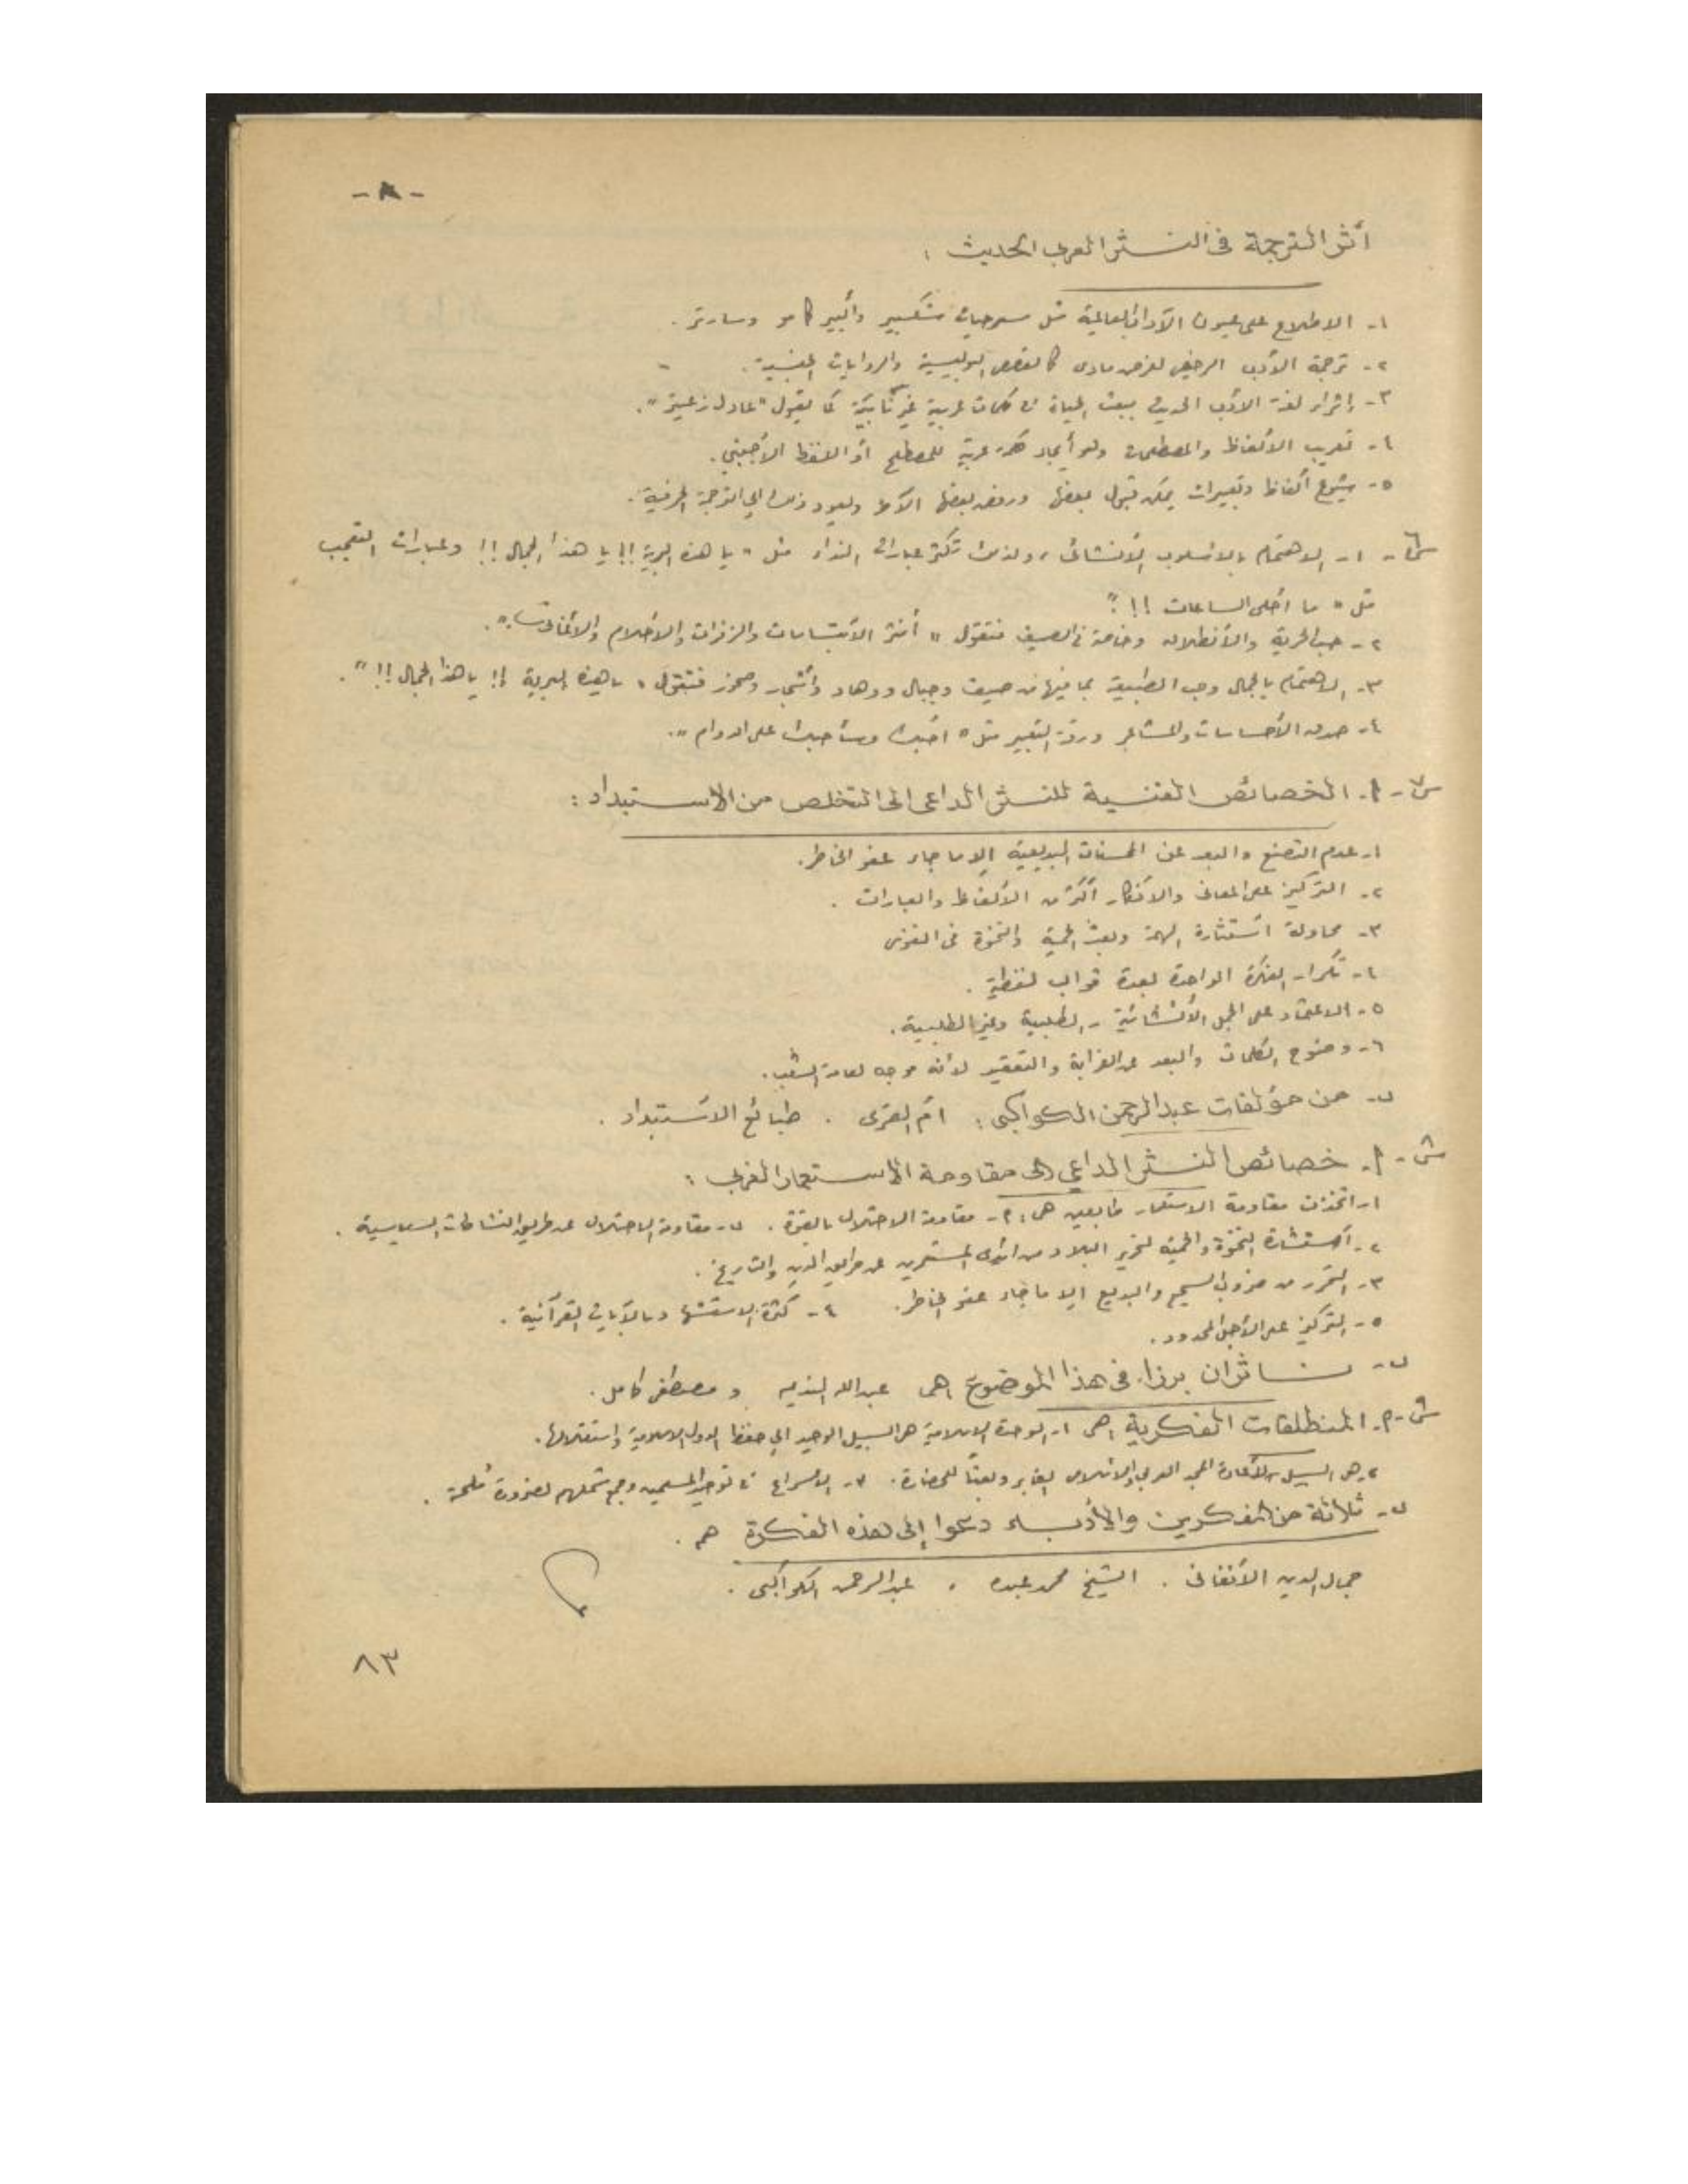 - ٨ -
أثر الترجمة في النثر العربي الحديث :
١- الاطلاع على عيون الآداب العالمية مثل مسرحيات شكسبير وألبير كامو وسارتر .
٢- ترجمة الأدب الرخيص لغرض مادي كالقصص البوليسية والروايات الجنسية .
٣- إثراء لغة الأدب الحديث ببعث الحياة في كلمات عربية غير كما يقول "عادل زعيتر".
٤- تعريب الألفاظ والمصطلحات وهو أيجاد كلمة عربية للمصطلح أو اللفظ الأجنبي .
٥- شيوع ألفاظ وتعبيرات يمكن قبول بعضها ورفض بعضها الآخر ويعود ذلك إلى الترجمة الحرفية .
س٦- ١- الاهتمام بالأسلوب الأنشائي ، ولذلك تكثر عبارات النداء مثل " يا هذه البرية !! يا هذا الجمال !! وعبارات التعجب
مثل " ما أحلى الساعات !! "
٢- حب الحرية والأنطلاق وخاصة في الصيف فتقول " أنثر الأبتسامات والزفرات والأحلام والأغاني ".
٣- الاهتمام بالجمال وحب الطبيعة بما فيها من صيف وجبال ووهاد وأشجار وصخور فتقول " يا هذه البرية !! يا هذا الجمال !! ".
٤- صدق الأحساسات والمشاعر ورقة التعبير مثل " أحبك وسأحبك على الدوام ".
س٧- أ. الخصائص الفنية للنثر الداعي الى التخلص من الاستبداد :
١- عدم التصنع والبعد عن المحسنات البديعية إلا ما جاء عفو الخاطر .
٢- التركيز على المعاني والأفكار أكثر من الألفاظ والعبارات .
٣- محاولة أستثارة الهمة وبعث الحمية والنخوة في النفوس
٤- تكرار الفكرة الواحدة بعدة قوالب لفظية .
٥- الاعتماد على الجمل الأنشائية - الطلبية وغير الطلبية .
٦- وضوح الكلمات والبعد عن الغرابة والتعقيد لأنه موجه لعامة الشعب .
ب- من مؤلفات عبد الرحمن الكواكبي : أم القرى . طبائع الأستبداد .
س٨- أ. خصائص النثر الداعي إلى مقاومة الاستعمار الغربي :
١- اتخذت مقاومة الاستعمار طابعين هما : أ- مقاومة الاحتلال بالقوة . ب- مقاومة الاحتلال عن طريق النشاطات السياسية .
٢- أستثارة النخوة والحمية لتحرير البلاد من المستعمرين عن طريق الدين والتاريخ .
٣- التحرر من ضروب السجع والبديع إلا ما جاء عفو الخاطر . ٤- كثرة الاستشهاد بالآيات القرآنية .
٥- التركيز على الأجل المحدود .
ب- ناثران برزا في هذا الموضوع هما عبد الله النديم و مصطفى كامل .
س٩- أ. المنطلقات الفكرية هي ١- الوحدة الاسلامية هي السبيل الوحيد إلى حفظ الدول الاسلامية واستقلالها .
٢- هي السبيل لأعادة المجد العربي والاسلامي الغابر وبعثاً للحضارة . ٣- الأسراع في توحيد المسلمين وجمع شملهم لضرورة ملحة .
ب- ثلاثة من المفكرين والأدباء دعوا إلى هذه الفكرة هم .
جمال الدين الأفغاني . الشيخ محمد عبده . عبد الرحمن الكواكبي .
٨٣